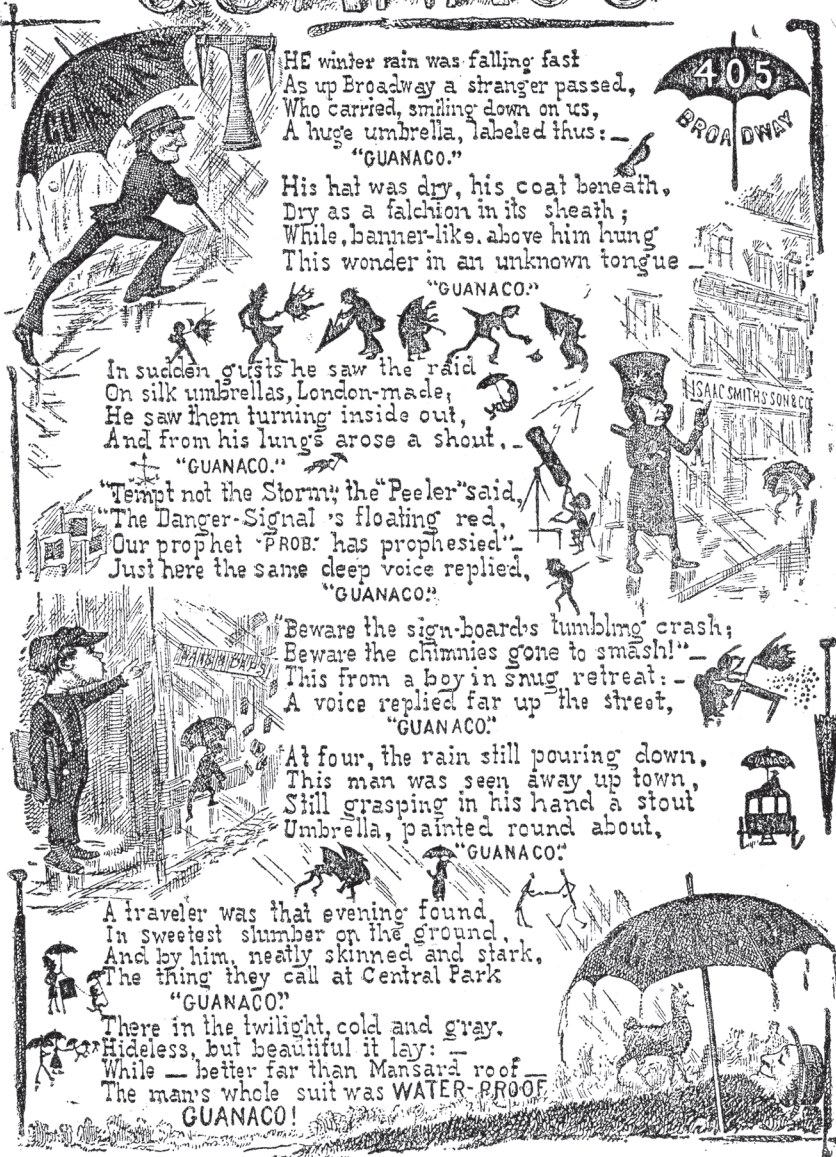 THE winter rain was falling fast
As up Broadway a stranger passed,
Who carried, smiling down on us,
A huge umbrella, labeled thus:—
"GUANACO."
405
BROADWAY
His hat was dry, his coat beneath,
Dry as a falchion in its sheath;
While, banner-like, above him hung
This wonder in an unknown tongue—
"GUANACO."
In sudden gusts he saw the raid
On silk umbrellas, London-made;
He saw them turning inside out,
And from his lungs arose a shout,—
"GUANACO."
ISAAC SMITH'S SON & CO
"Tempt not the Storm," the "Peeler" said,
"The Danger-Signal 's floating red,
Our prophet "PROB." has prophesied"—
Just here the same deep voice replied,
"GUANACO."
"Beware the sign-board's tumbling crash;
Beware the chimnies gone to smash!"—
This from a boy in snug retreat:—
A voice replied far up the street,
"GUANACO."
At four, the rain still pouring down,
This man was seen away up town,
Still grasping in his hand a stout
Umbrella, painted round about,
"GUANACO."
GUANACO
A traveler was that evening found
In sweetest slumber on the ground,
And by him, neatly skinned and stark,
The thing they call at Central Park
"GUANACO."
There in the twilight, cold and gray,
Hideless, but beautiful it lay:—
While — better far than Mansard roof—
The man's whole suit was WATER-PROOF
GUANACO!